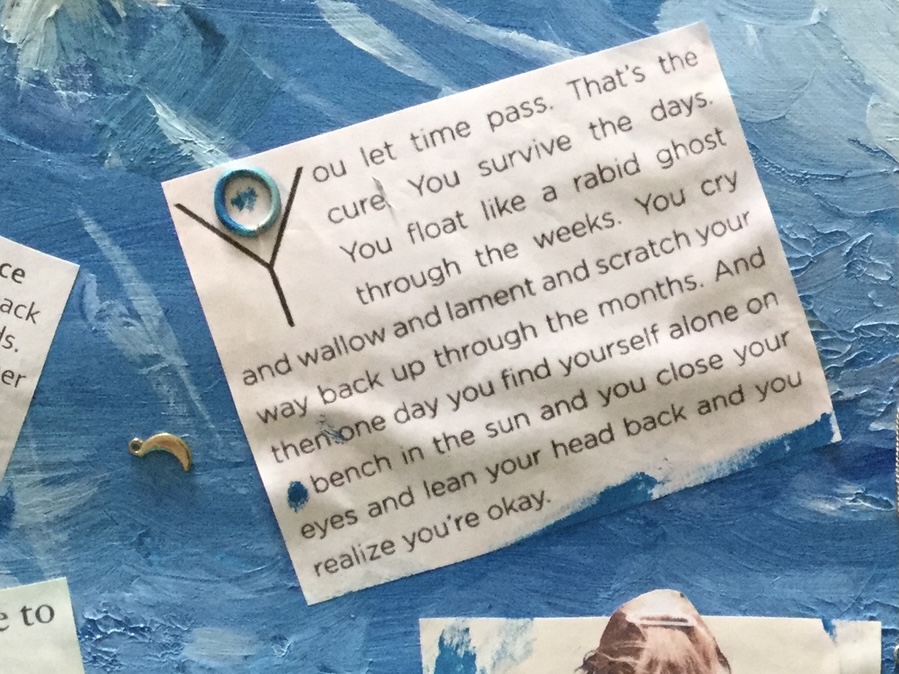 You let time pass. That's the
cure. You survive the days.
You float like a rabid ghost
through the weeks. You cry
and wallow and lament and scratch your
way back up through the months. And
then one day you find yourself alone on
bench in the sun and you close your
eyes and lean your head back and you
realize you're okay.
ce
ack
ds.
er
e to